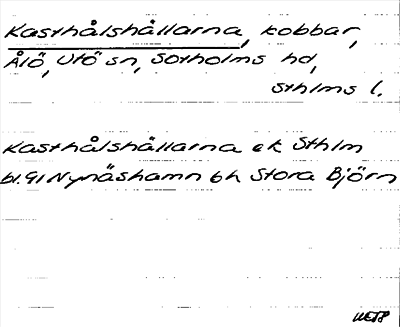 Kasthålshållarna, kobbar,
Ålö, Utö sn, Sotholms hd,
Sthlms l.
Kasthålshållarna ek Sthlm
bl. 91 Nynäshamn bh Stora Björn